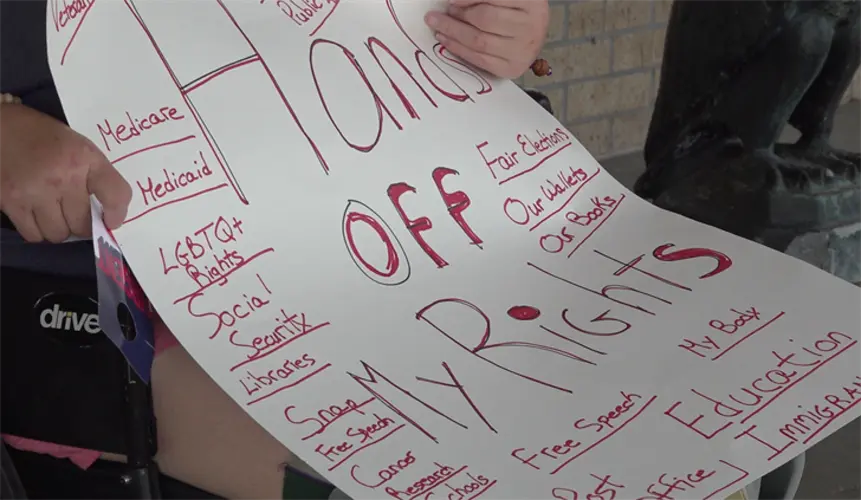 Veterans
Public
Hands
OFF
My Rights
Medicare
Medicaid
LGBTQ+
Rights
Social
Security
Libraries
Snap
Free Speech
Cancer
Research
Schools
Fair Elections
Our Wallets
Our Books
My Body
Education
Free Speech
Post
Office
drive